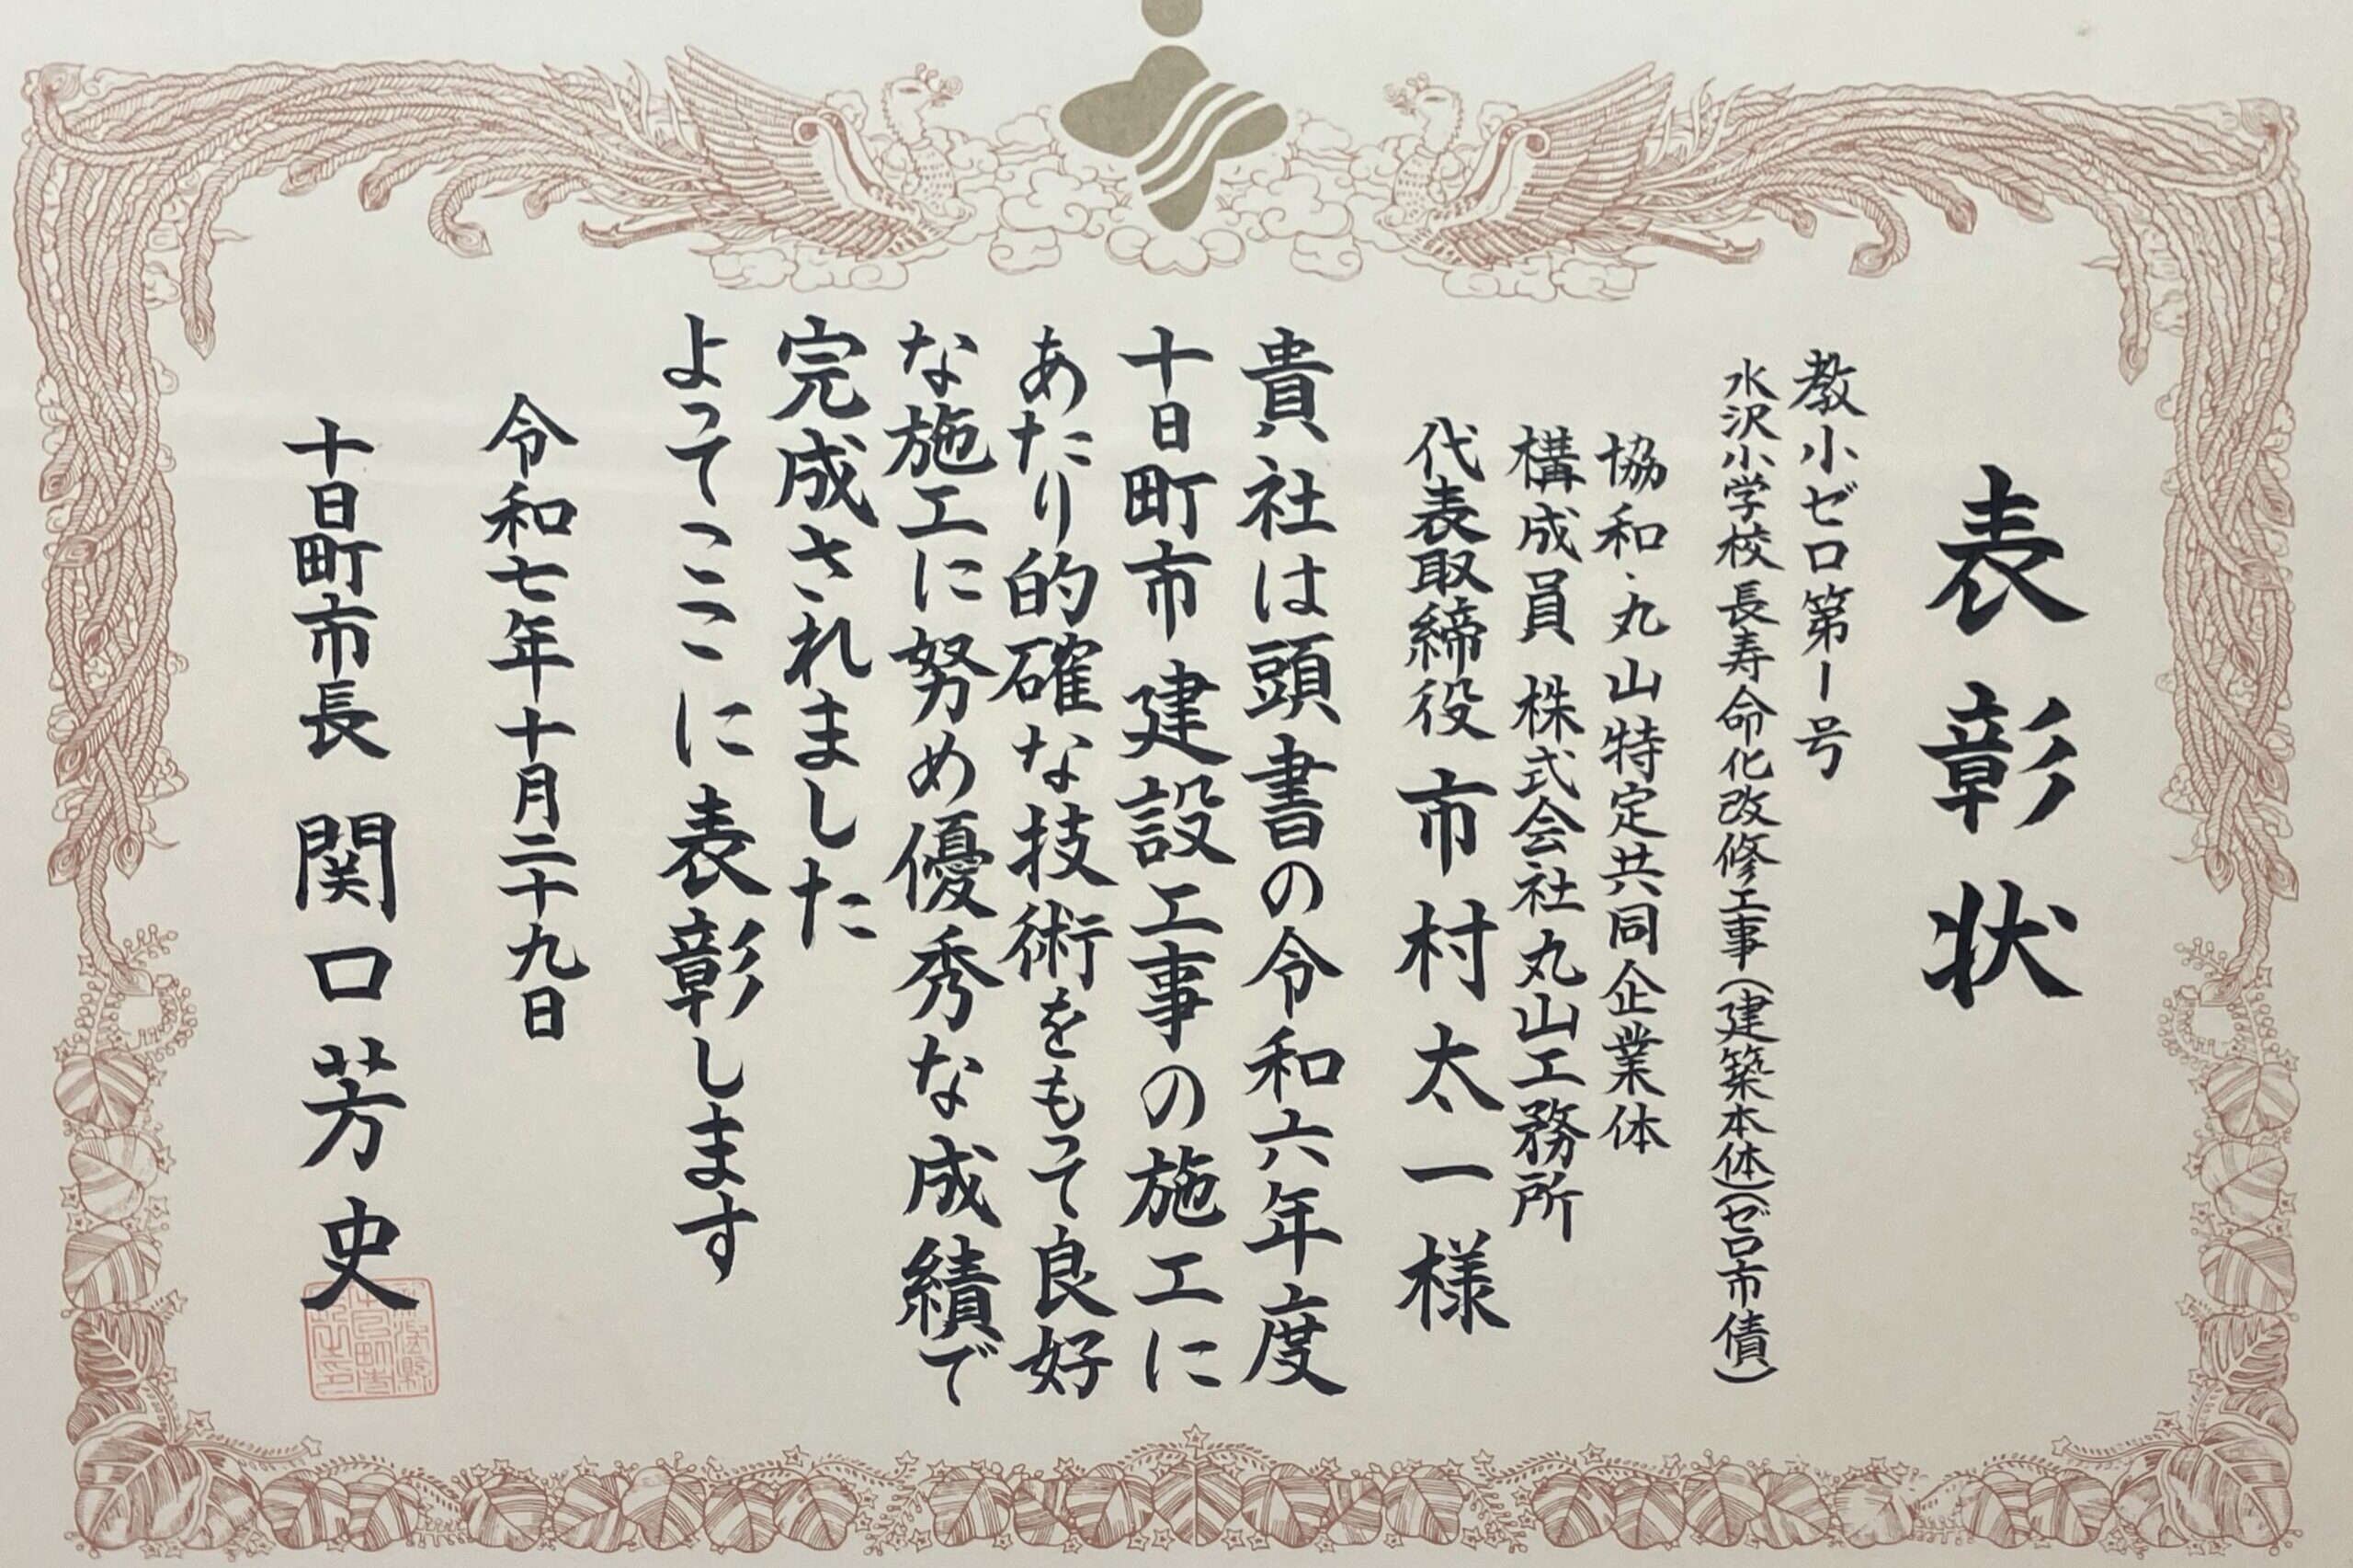 表彰状
教小ゼロ第1号
水沢小学校長寿命化改修工事(建築本体)(ゼロ市債)
協和・丸山特定共同企業体
構成員 株式会社丸山工務所
代表取締役 市村太一様
貴社は頭書の令和六年度
十日町市建設工事の施工に
あたり的確な技術をもって良好
な施工に努め優秀な成績で
完成されました
よってここに表彰します
令和七年十月二十九日
十日町市長 関口芳史